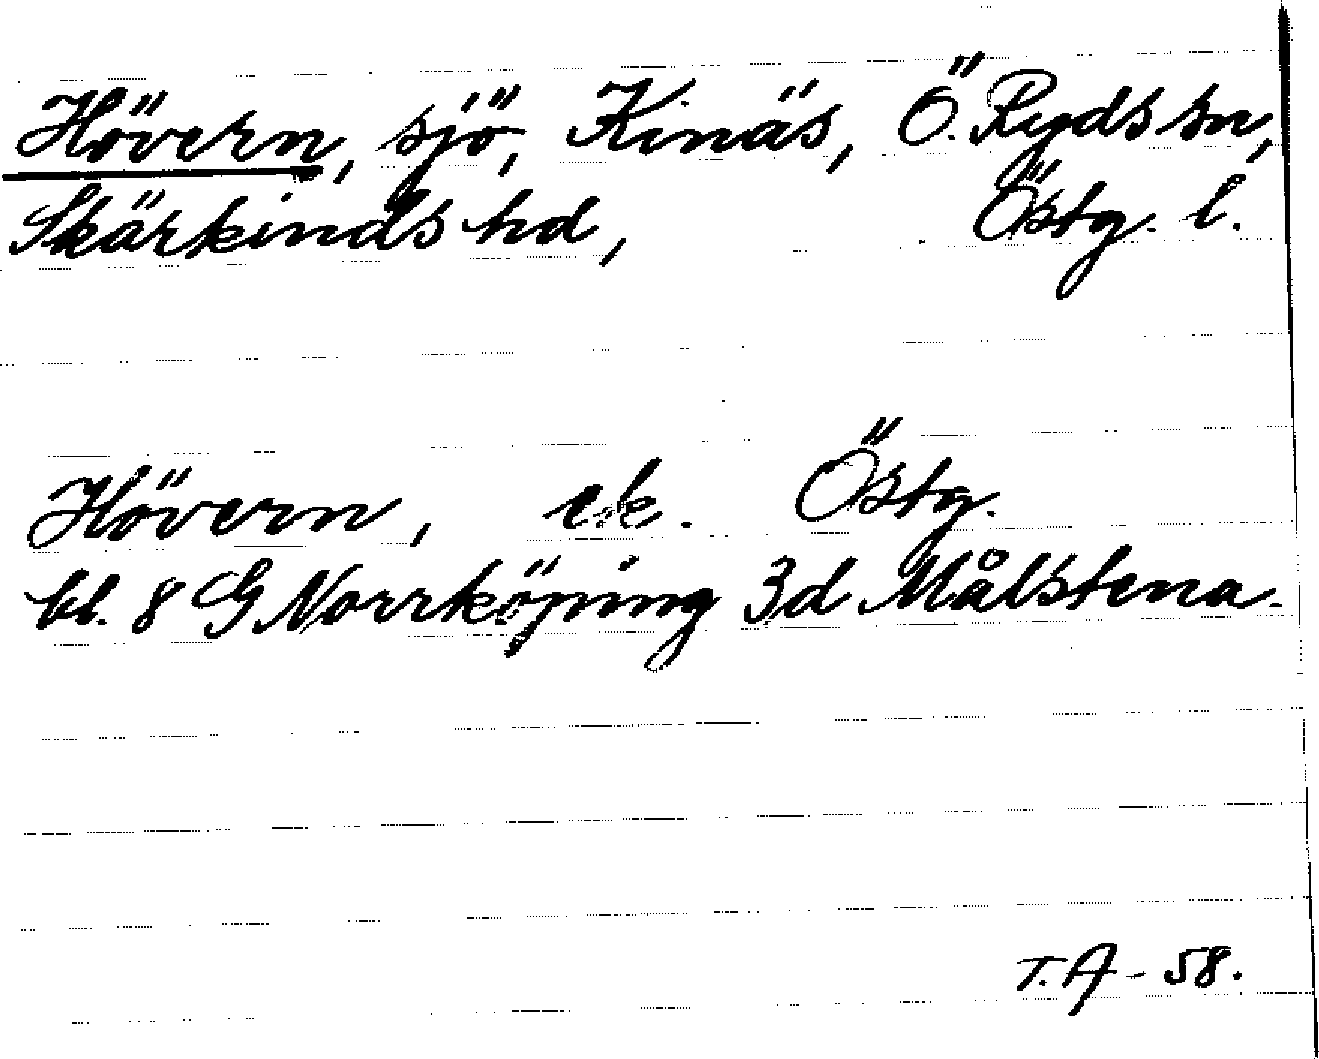 Hövern, sjö, Kinäs, Ö. Ryds sn,
Skärkinds hd, Östg. l.
Hövern, ek. Östg.
bl. 8 G Norrköping 3d Målstena.
T. A - 58.